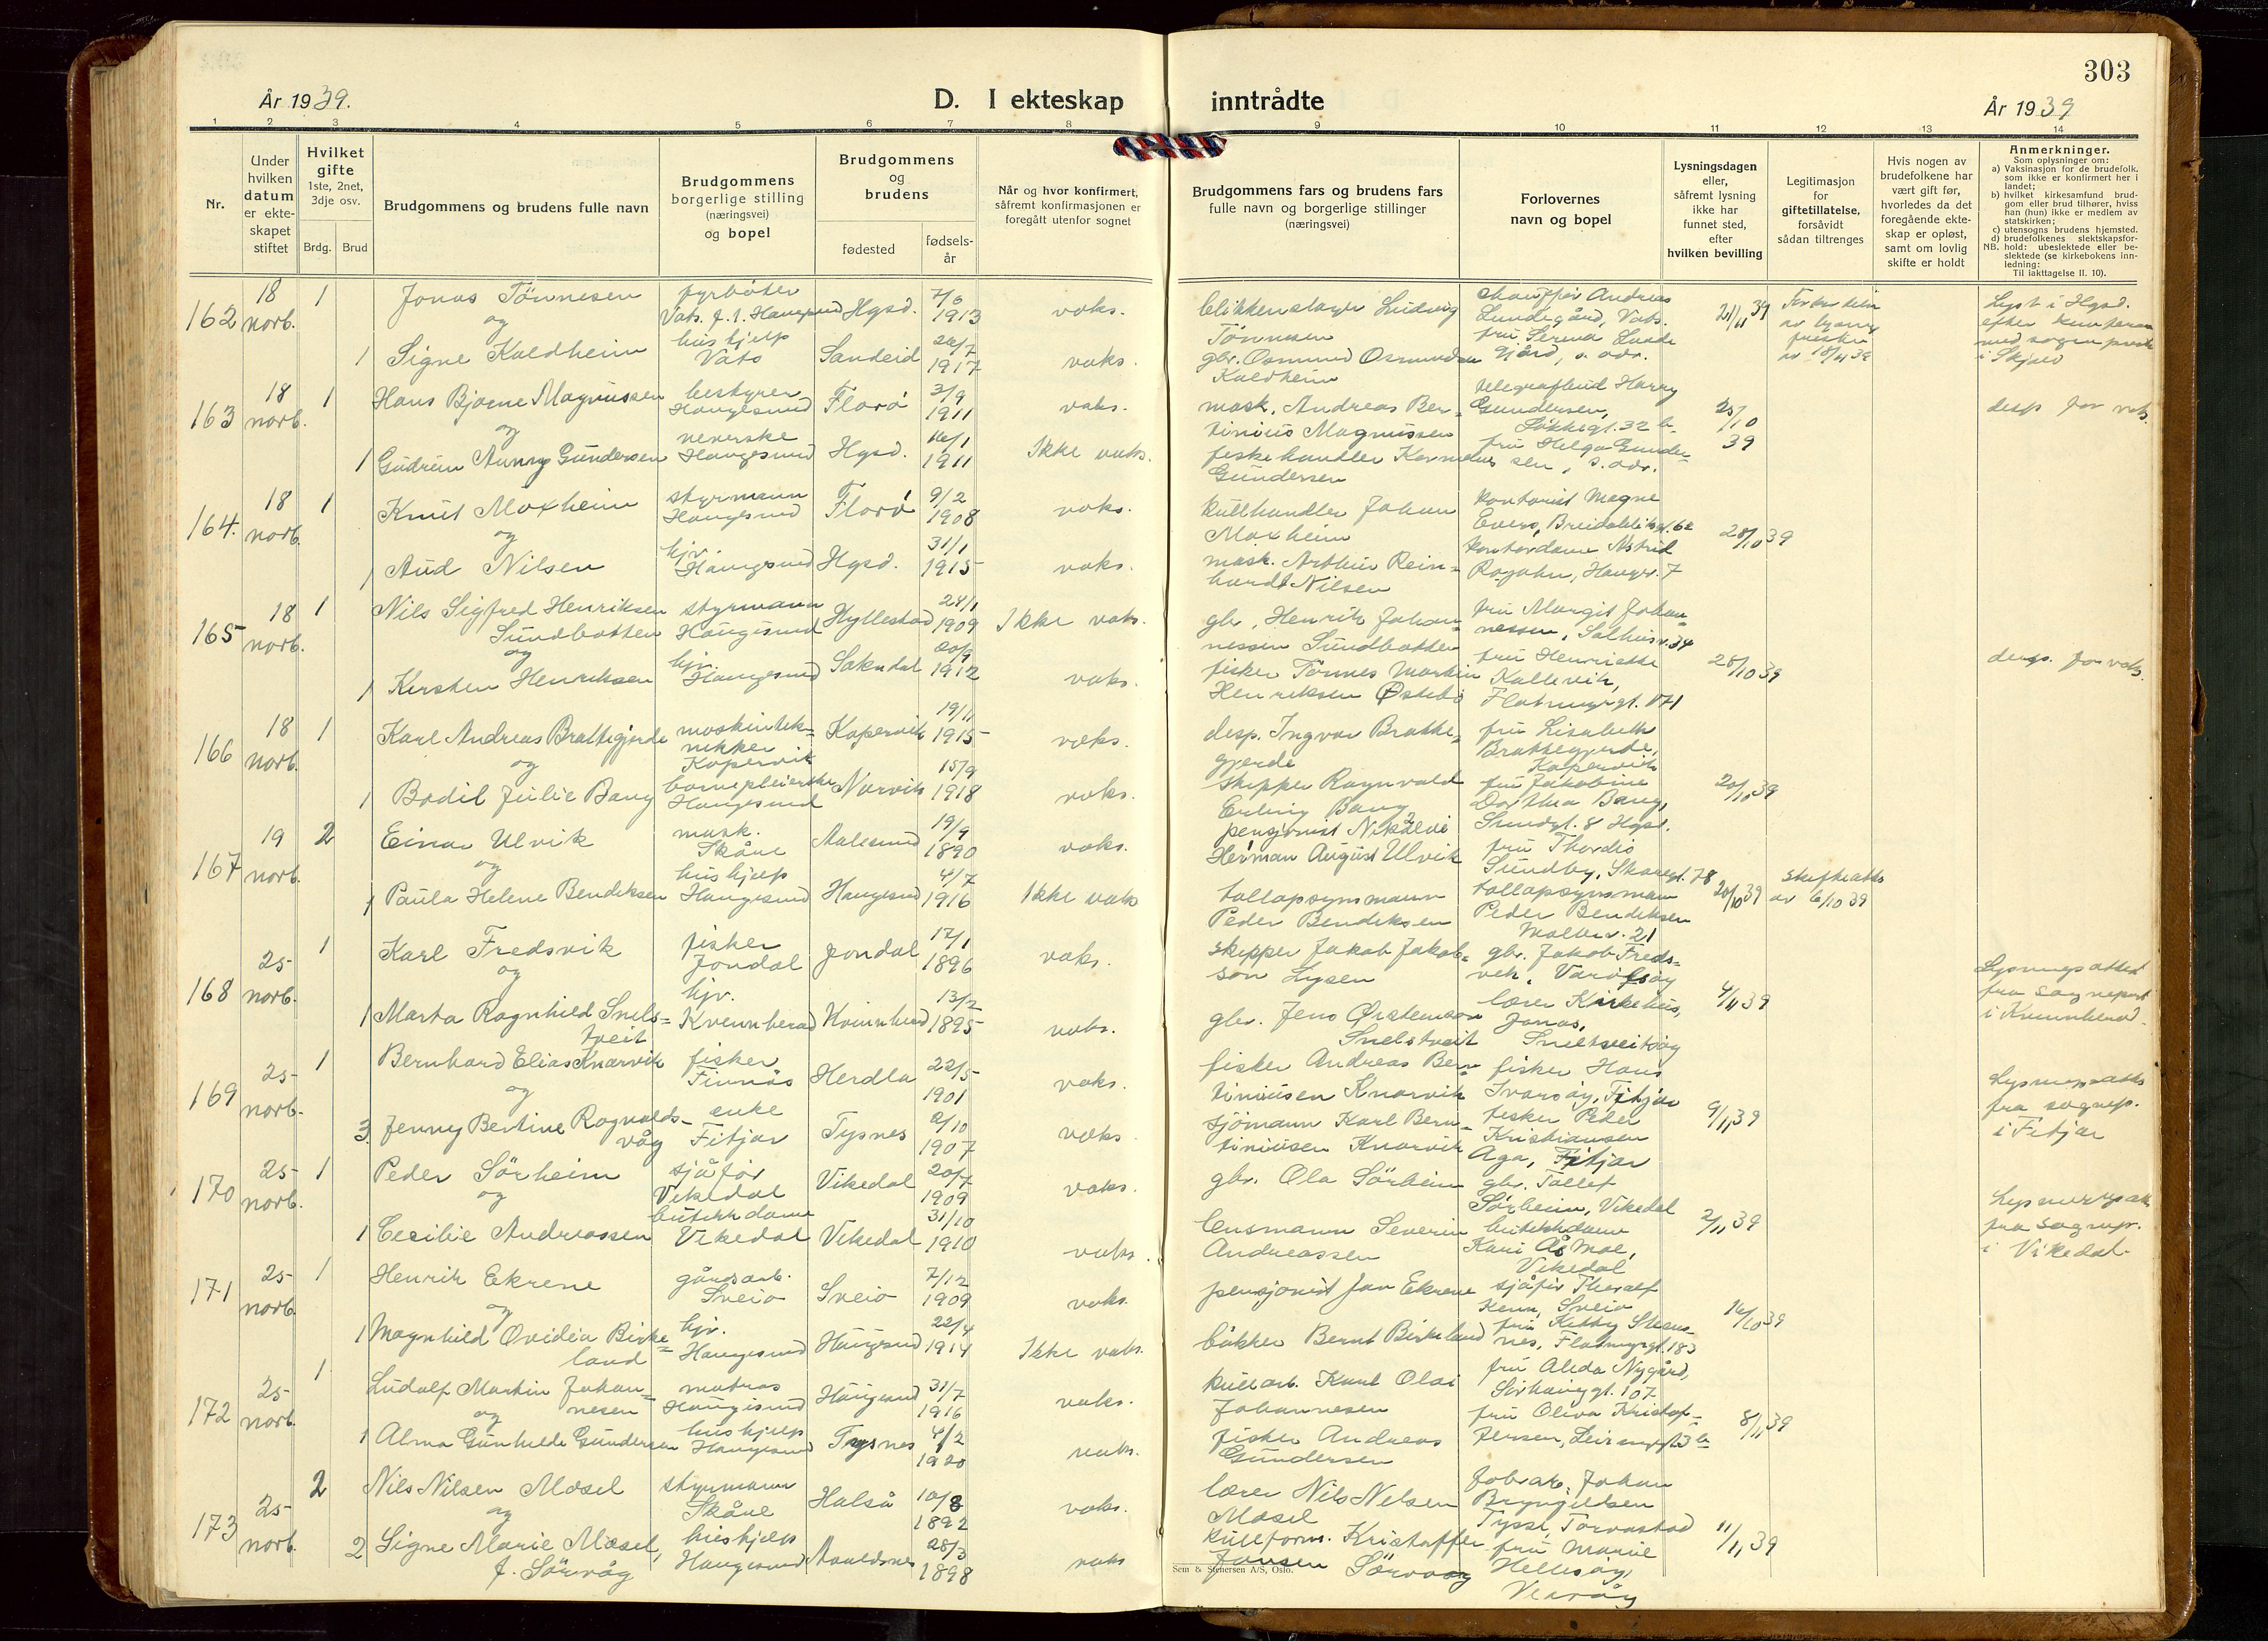 303
År 1939.
D. I ekteskap inntrådte
År 1939
1 2 3 4 5 6 7 8 9 10 11 12 13 14
Nr.
Under hvilken datum er ekteskapet stiftet
Hvilket gifte 1ste, 2net, 3dje osv.
Brdg. Brud
Brudgommens og brudens fulle navn
Brudgommens borgerlige stilling (næringsvei) og bopel
Brudgommens og brudens
fødested
fødselsår
Når og hvor konfirmert, såfremt konfirmasjonen er foregått utenfor sognet
Brudgommens fars og brudens fars fulle navn og borgerlige stillinger (næringsvei)
Forlovernes navn og bopel
Lysningsdagen eller, såfremt lysning ikke har funnet sted, efter hvilken bevilling
Legitimasjon for giftetillatelse, forsåvidt sådan tiltrenges
Hvis nogen av brudefolkene har vært gift før, hvorledes da det foregående ekteskap er opløst, samt om lovlig skifte er holdt
Anmerkninger.
Som oplysninger om:
a) Vaksinasjon for de brudefolk. som ikke er konfirmert her i landet;
b) hvilket kirkesamfund brudgom eller brud tilhører, hviss han (hun) ikke er medlem av statskirken;
c) utensogns brudens hjemsted.
d) brudefolkenes slektskapsforhold: ubeslektede eller beslektede (se kirkebokens innledning:
NB. Til iakttagelse II. 10).
162 18 novb. 1 Jonas Tönnesen fyrböter Vats. f. t. Haugesund Hgsd. 7/6 1913 vaks. blikkenslager Ludvig Tönnesen sjauffør Andreas Lundegård, Vats. 21/11 39
og
1 Signe Kaldheim hushjelp Vats Sandeid 1917 vaks. gbr. Osmund Osmundsen Kaldheim
Lyst i Hgsd.
i Skjold
163 18 novb. 1 Hans Bjarne Magnussen bestyrer Haugesund Florö 3/9 1911 vaks. mask. Andreas Bertinius Magnussen telegrafbud Harry Gundersen, Sökkegt. 32 b. 25/10 39 desp. for vaks.
og
1 Gudrun Aunny Gundersen veverske Haugesund Hgsd. 16/1 1911 Ikke vaks. fiskehandler Kornelius Gundersen fru Helga Gundersen, s. adr.
164. 18 novb. 1 Knut Moxheim styrmann Haugesund Florö 9/2 1908 vaks. kullhandler Johan Moxheim kontorist Magne Evers, Breidablikgt. 62 28/10 39
og
1 Aud Nilsen hjv. Haugesund Hgsd. 31/1 1915 vaks. mask. Arthur Reinhardt Nilsen kontordame Astrid Rojahn, Haugv. 7
165 18 novb. 1 Nils Sigfred Henriksen Sundbotten styrmann Haugesund Hyllestad 24/1 1909 Ikke vaks. gbr. Henrik Johannessen Sundbotten fru Margit Johannessen, Salhusv. 34 28/10 39 desp. for vaks.
og
1 Kirsten Henriksen hjv. Haugesund Sokndal 20/9 1912 vaks. fisker Tönnes Martin Henriksen Østebö fru Henriette Kallevik, Flotmyrgt. 171
166 18 novb. 1 Karl Andreas Brattegjerde maskintekniker Kopervik Kopervik 19/11 1915 vaks. desp. Ingvar Brattegjerde fru Lisabeth Brattegjerde, Kopervik 20/10 39
og
1 Bodil Julie Bang barnepleierske Haugesund Narvik 15/9 1918 vaks. skipper Ragnvald Erling Bang fru Jakobine Dorthea Bang, Sundgt. 8 Hgsd.
167 19 novb. 2 Einar Ulvik mask. Skåre Aalesund 19/9 1890 vaks. pensjonist Nikolai Herman August Ulvik fru Thordis Sundby, Skaregt. 78 20/10 39 skifteatts av 6/10 39
og
1 Paula Helene Bendiksen hushjelp Haugesund Haugesund 4/7 1916 Ikke vaks tollopsynsmann Peder Bendiksen tollopsynsmann Peder Bendiksen 21
168 25 novb. 1 Karl Fredsvik fisker Jondal Jondal 17/1 1896 vaks. skipper Jakob Jakobson Lysen gbr. Jakob Fredsvik, Varalsöy 4/11 39 Lysningsattest fra sogneprest i Kvinnherad.
og
1 Marta Ragnhild Snelstveit hjv. Kvinnherad Kvinnherad 13/2 1895 vaks. gbr. Jens Ørstensson Snelstveit lærer Kirkehus, Jonas, Snelstveitöy
169 25 novb. 1 Bernhard Elias Knarvik fisker Finnås Herdla 22/5 1901 vaks. fisker Andreas Berntiniusen Knarvik fisker Hans Ivarsöy, Fitjar 9/11 39 Lysningsatts fra sognep. i Fitjar
og
3. Jenny Bertine Ragnvaldsvåg enke Fitjar Tysnes 2/10 1907 vaks. sjömann Karl Berntiniusen Knarvik fisker Peder Kristiansen Aga, Fitjar
170 25 novb. 1 Peder Sörheim sjåför Vikedal Vikedal 20/7 1909 vaks. gbr. Ola Sörheim gbr. Tollef Sørheim, Vikedal 2/11 39 Lysningsatt. fra sognep. i Vikedal.
og
1 Cecilie Andreassen butikkdame Vikedal Vikedal 31/10 1910 vaks. lensmann Severin Andreassen butikkdame Kari Å Moe, Vikedal
171 25 novb. 1 Henrik Ekrene gårdsarb. Sveio Sveio 7/12 1909 vaks. pensjonist Jan Ekrene sjåför Thoralf Sveio 16/10 39
og
1 Magnhild Ovidia Birkeland hjv. Haugesund Haugesund 22/4 1914 Ikke vaks. båkker Bernt Birkeland fru Kitty Steensnes, Flotmyrgt. 183
172 25 novb. 1. Ludolf Martin Johannesen matros Haugesund Haugesund 31/7 1916 vaks. kullarb. Karl Olai Johannesen fru Alida Nygård, Sörhauggt. 107 8/11 39
og
1 Alma Gunhilde Gundersen hushjelp Haugesund Tysnes 4/2 1920 vaks. fisker Andreas Gundersen fru Oliva Kristoffersen, Leirvegt. 3 b
173 25 novb. 2 Nils Nilsen Mosel styrmann Skåre Halså 10/8 1892 vaks. lærer Nils Nilsen Mosel fabr.arb. Johan Bryngelsen Tysse, Torvastad 11/11 39
og
2 Signe Marie Mosel, f. Sörvåg hushjelp Haugesund Avaldsnes 28/3 1898 vaks kullform. Kristoffer Jansen Sörvaag fru Marie Hellesöy, Veavåg
Sem & Stenersen A/S, Oslo.